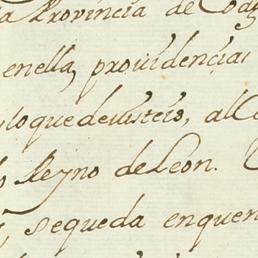 a Provincia de Coa
enella, providencias
lo que devisteis, al C
o Reyno de Leon.
, sequeda enquen